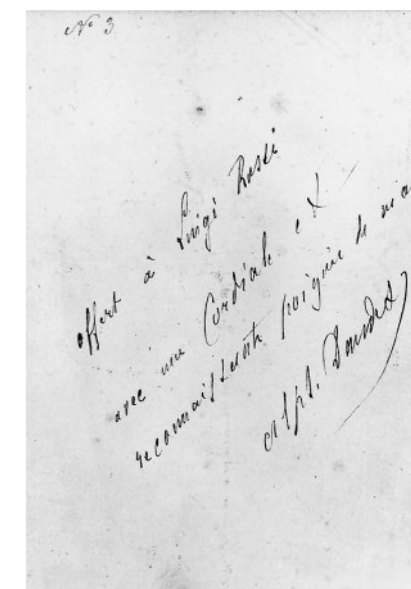 N° 3
offert à Luigi Rossi
avec une Cordiale et
reconnaissante poignée de ma
Alph. Daudet